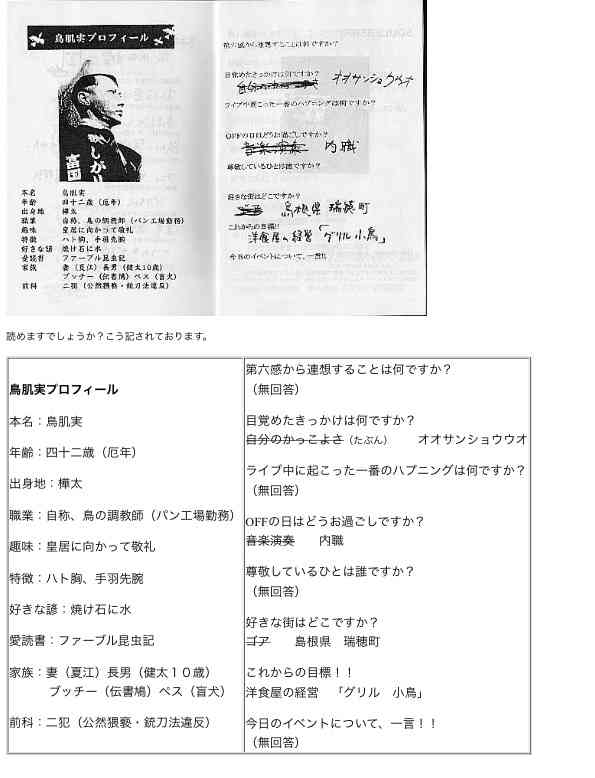 鳥肌実プロフィール
欲しがり
本名 鳥肌実
年齢 四十二歳（厄年）
出身地 樺太
職業 自称、鳥の調教師（パン工場勤務）
趣味 皇居に向かって敬礼
特徴 ハト胸、手羽先腕
好きな諺 焼け石に水
愛読書 ファーブル昆虫記
家族 妻（夏江）長男（健太10歳）
ブッチー（伝書鳩）ペス（盲犬）
前科 二犯（公然猥褻・銃刀法違反）
第六感から連想することは何ですか？
目覚めたきっかけは何ですか？
オオサンショウウオ
ライブ中起こった一番のハプニングは何ですか？
OFFの日はどうお過ごしですか？
音楽演奏 内職
尊敬しているひとは誰ですか？
好きな街はどこですか？
ゴア 島根県 瑞穂町
これからの目標!!
洋食屋の経営 「グリル小鳥」
今日のイベントについて、一言!!
読めますでしょうか？こう記されております。
鳥肌実プロフィール
本名：鳥肌実
年齢：四十二歳（厄年）
出身地：樺太
職業：自称、鳥の調教師（パン工場勤務）
趣味：皇居に向かって敬礼
特徴：ハト胸、手羽先腕
好きな諺：焼け石に水
愛読書：ファーブル昆虫記
家族：妻（夏江）長男（健太１０歳）
ブッチー（伝書鳩）ペス（盲犬）
前科：二犯（公然猥褻・銃刀法違反）
第六感から連想することは何ですか？
（無回答）
目覚めたきっかけは何ですか？
自分のかっこよさ（たぶん） オオサンショウウオ
ライブ中に起こった一番のハプニングは何ですか？
（無回答）
OFFの日はどうお過ごしですか？
音楽演奏 内職
尊敬しているひとは誰ですか？
（無回答）
好きな街はどこですか？
ゴア 島根県 瑞穂町
これからの目標！！
洋食屋の経営 「グリル 小鳥」
今日のイベントについて、一言！！
（無回答）